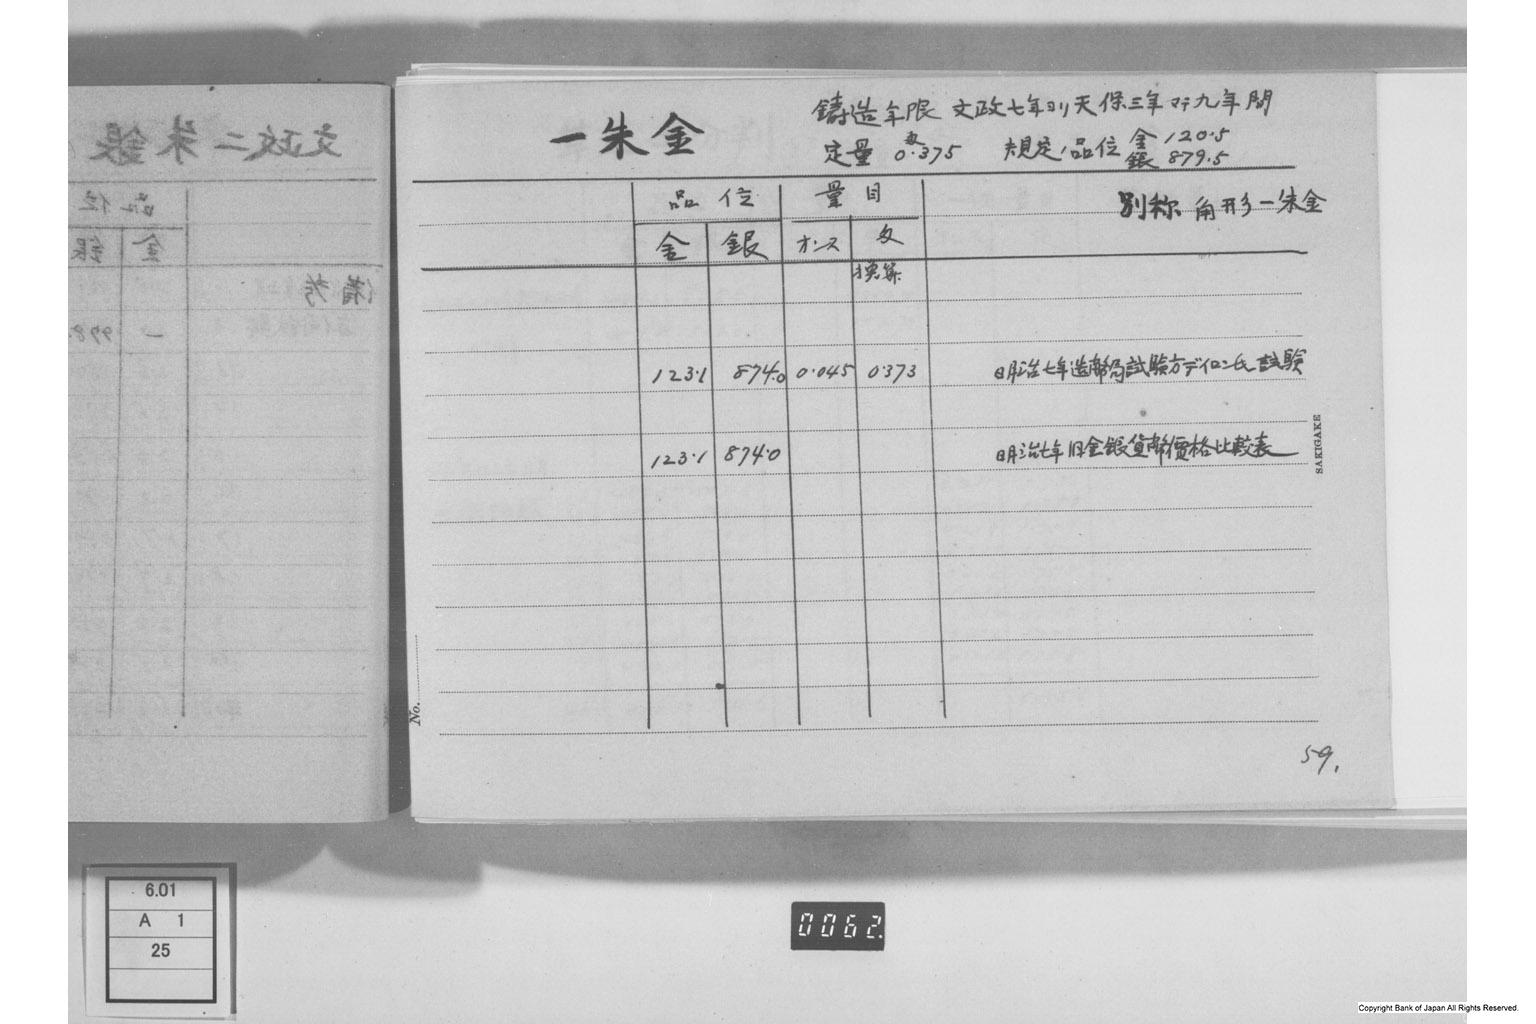 一朱金
鋳造年限 文政七年ヨリ天保三年マデ九年間
定量 匁0.375 規定ノ品位 金120.5 銀879.5
別称 角形一朱金
品位 量目
金 銀 オンス 匁
換算
123.1 874.0 0.045 0.373 明治七年造幣局試験方ディロン氏試験
123.1 874.0 明治七年旧金銀貨幣價格比較表
SAKIGAKE
No.
59.
文政二朱銀
品位
金 銀
備考
6.01
A 1
25
0062.
Copyright Bank of Japan All Rights Reserved.